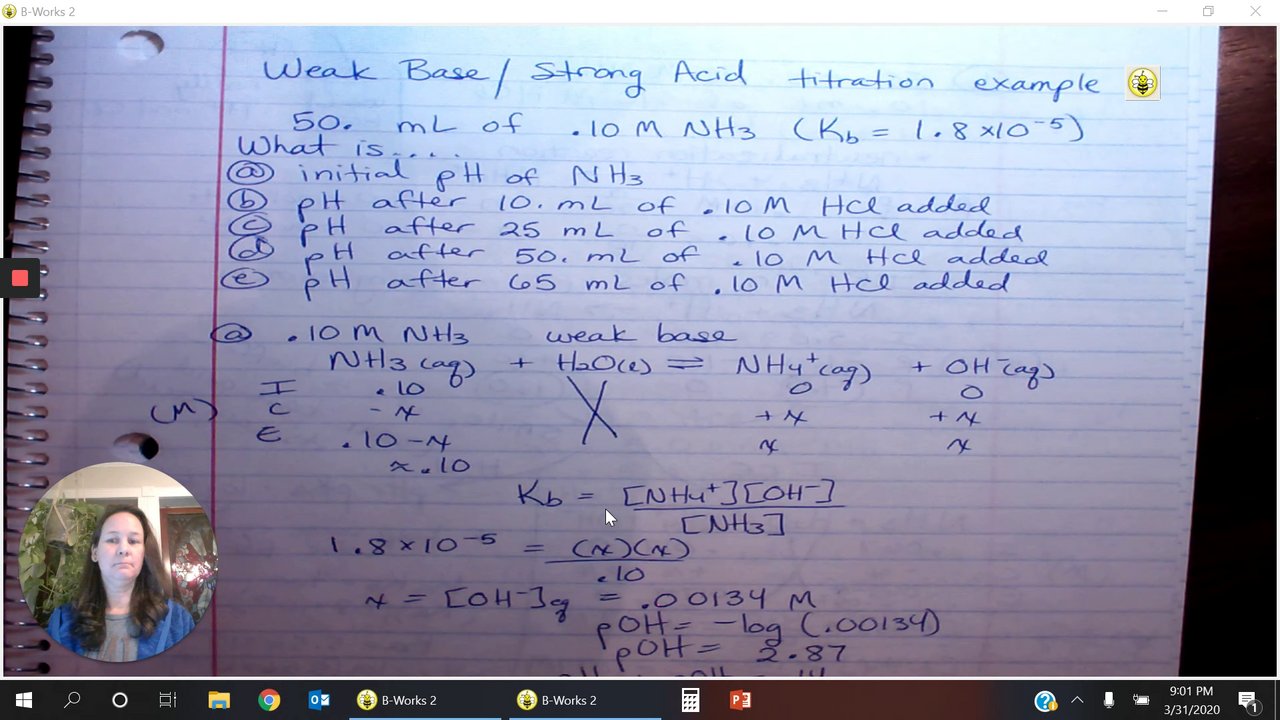 B-Works 2
Weak Base/Strong Acid titration example
50. mL of .10 M NH3 (Kb = 1.8 x10-5)
What is....
(a) initial pH of NH3
(b) pH after 10. mL of .10 M HCl added
(c) pH after 25 mL of .10 M HCl added
(d) pH after 50. mL of .10 M HCl added
(e) pH after 65 mL of .10 M HCl added
(a) .10 M NH3 weak base
NH3 (aq) + H2O(l) ⇌ NH4+(aq) + OH-(aq)
I .10 0 0
(M) C -x +x +x
E .10 -x x x
≈ .10
Kb = [NH4+][OH-]
[NH3]
1.8 x 10-5 = (x)(x)
.10
x = [OH-]eq = .00134 M
pOH = -log (.00134)
pOH = 2.87
B-Works 2 B-Works 2
9:01 PM
3/31/2020